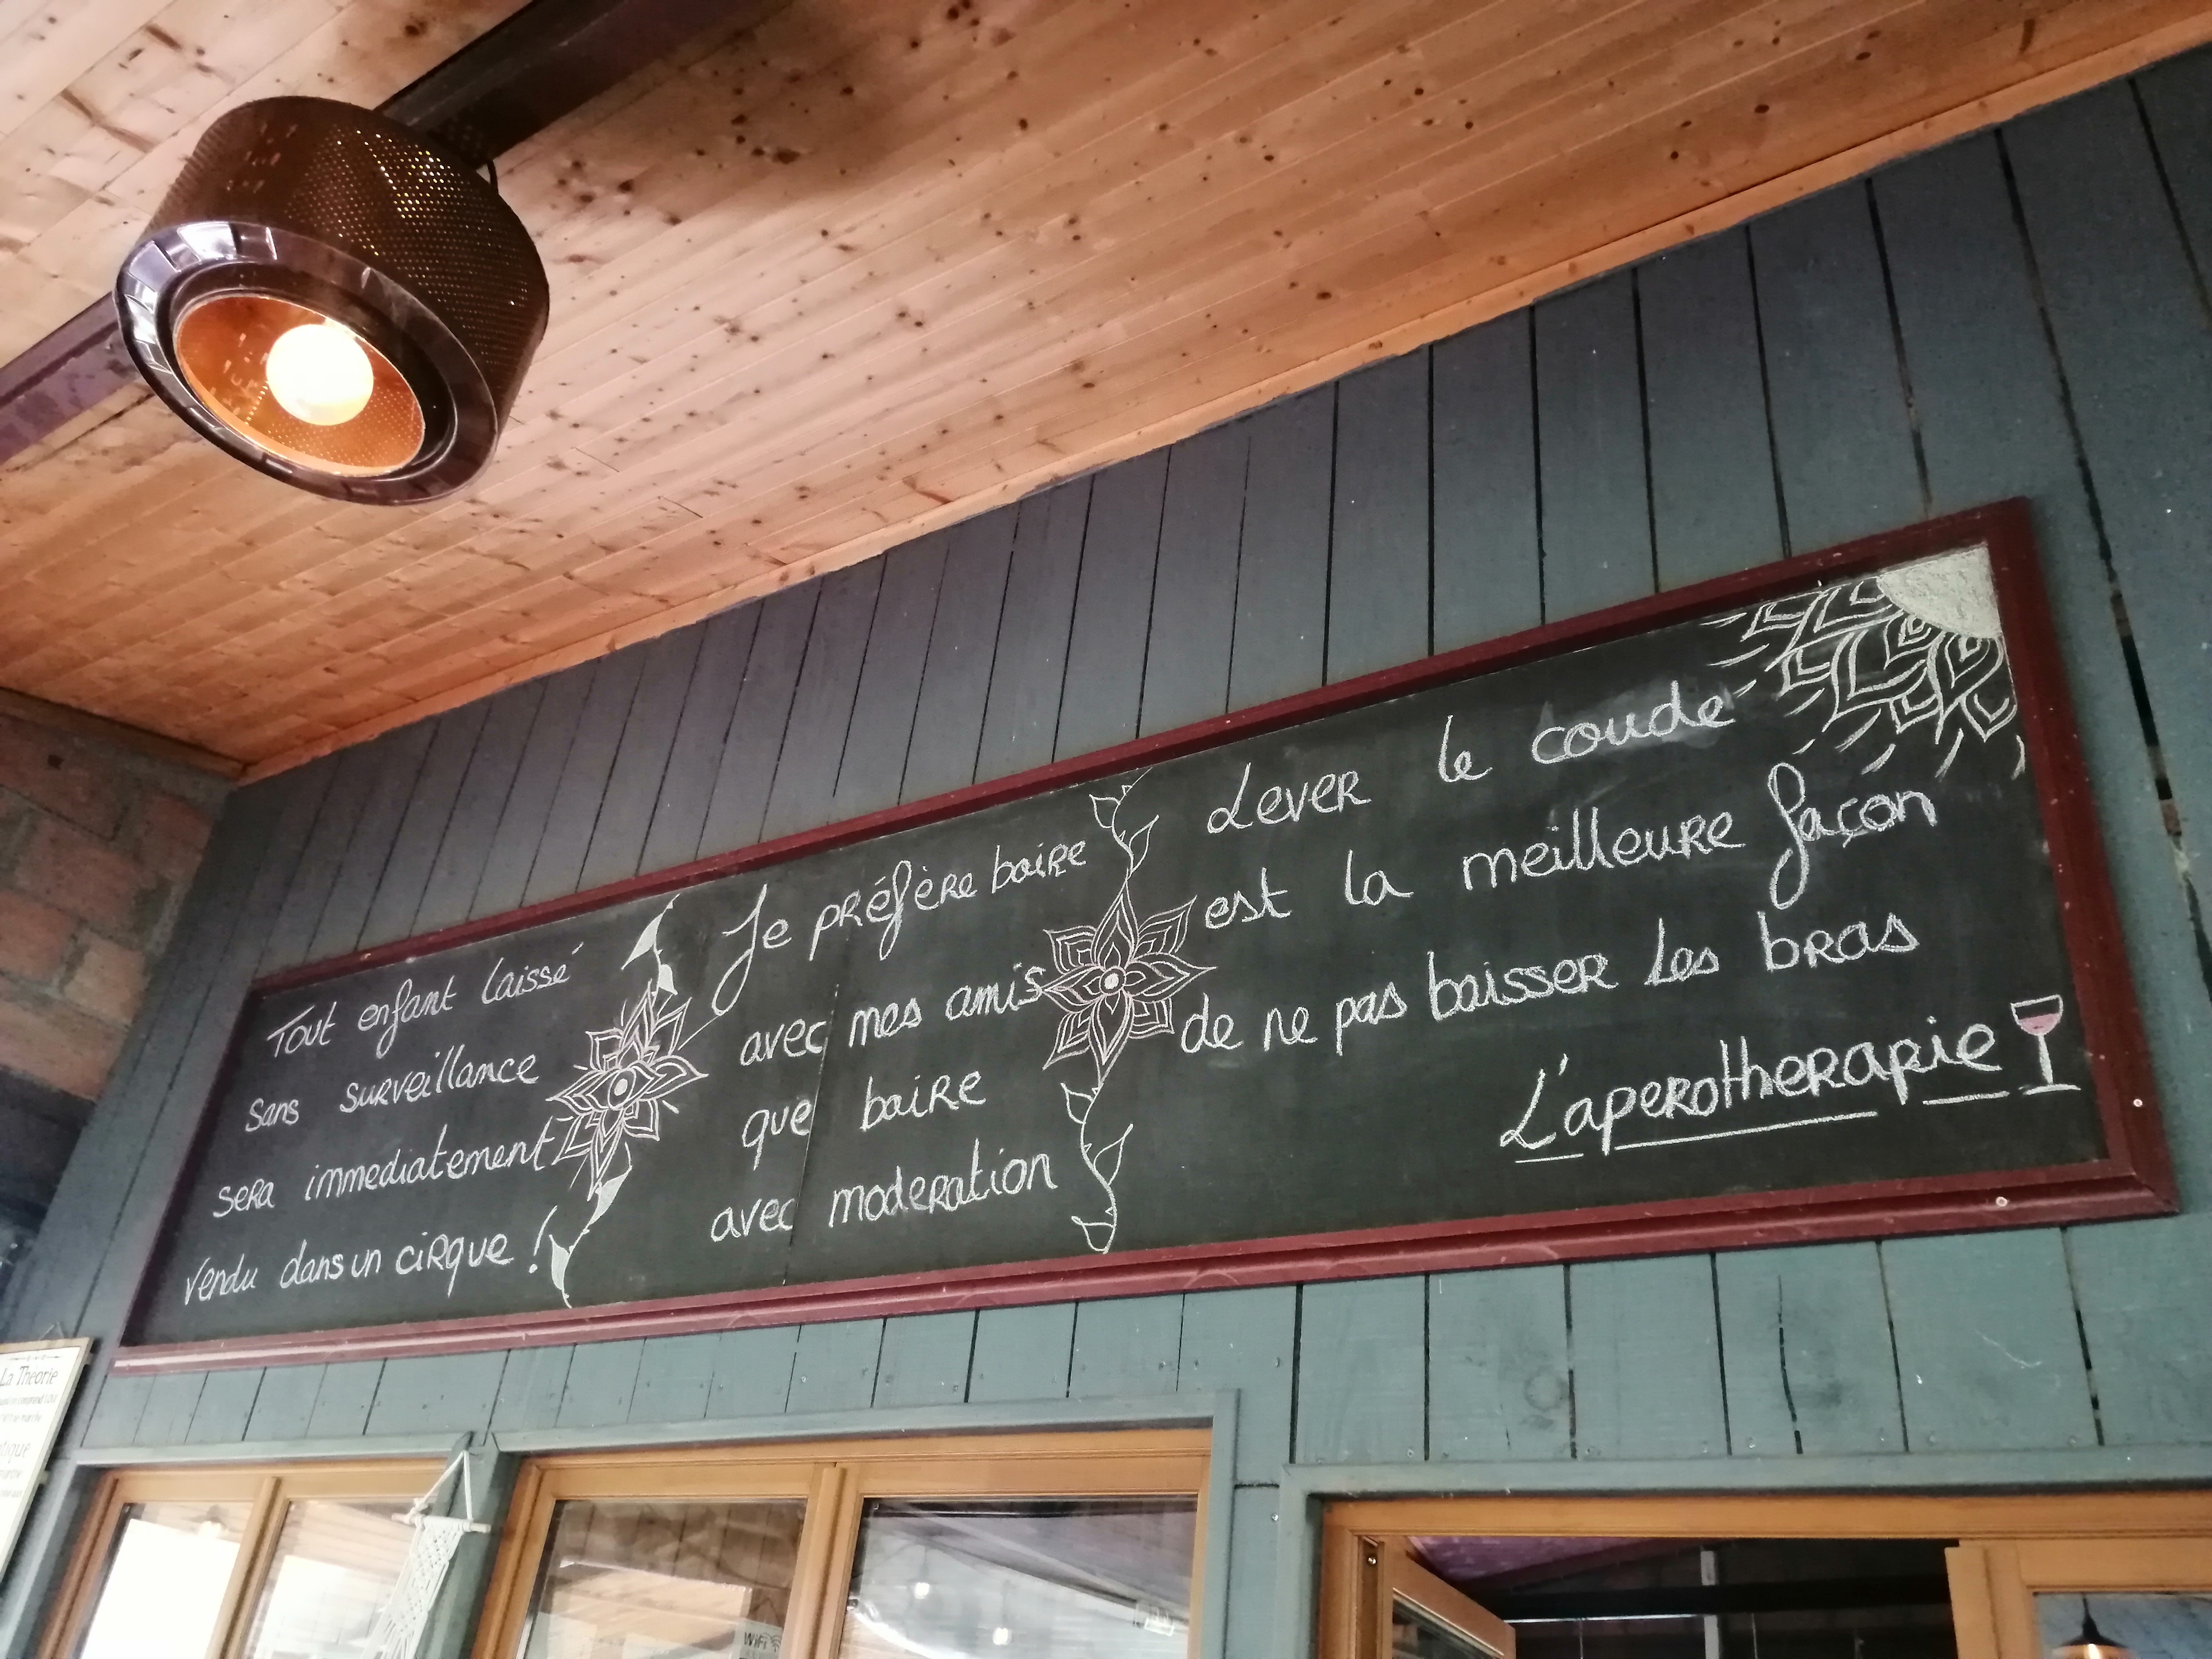 Tout enfant laissé
sans surveillance
sera immediatement
vendu dans un cirque !
Je préfère boire
avec mes amis
que boire
avec moderation
Lever le coude
est la meilleure façon
de ne pas baisser les bras
L'aperotherapie
La Théorie
WiFi